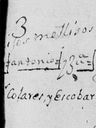 3
los mellisos
Antonio
Colares, y Escobar